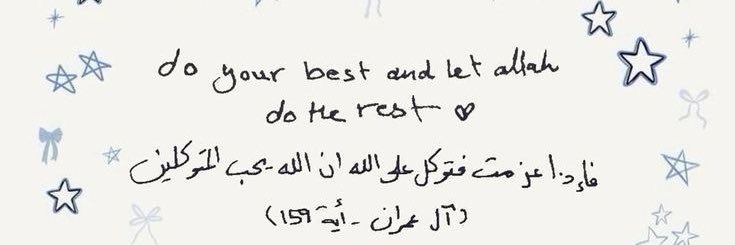 do your best and let allah
do the rest ♡
فإذا عزمت فتوكل على الله ان الله يحب المتوكلين
(آل عمران - أية 159)